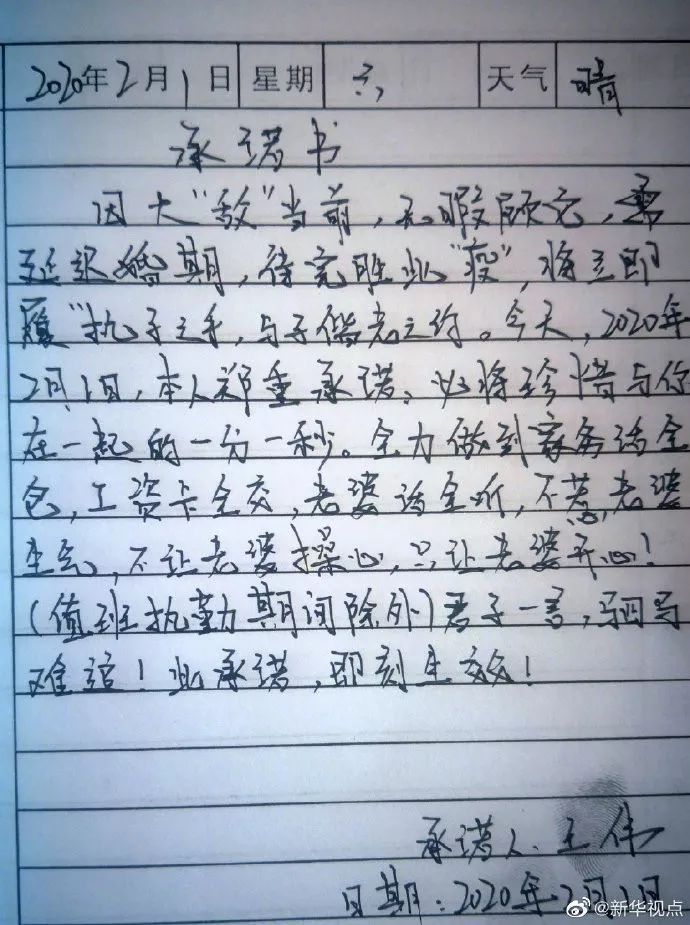 2020年2月1日 星期 六 天气 晴
承诺书
因大“敌”当前，无暇顾它，需
延迟婚期，待完胜此“疫”，将立即
履“执子之手，与子偕老之约。今天，2020年
2月1日，本人郑重承诺：必将珍惜与你
在一起的一分一秒。全力做到家务活全
包，工资卡全交，老婆话全听，不惹老婆
生气，不让老婆操心，只让老婆开心！
（值班执勤期间除外）君子一言，驷马
难追！此承诺，即刻生效！
承诺人：王伟
日期：2020年2月1日
@新华视点